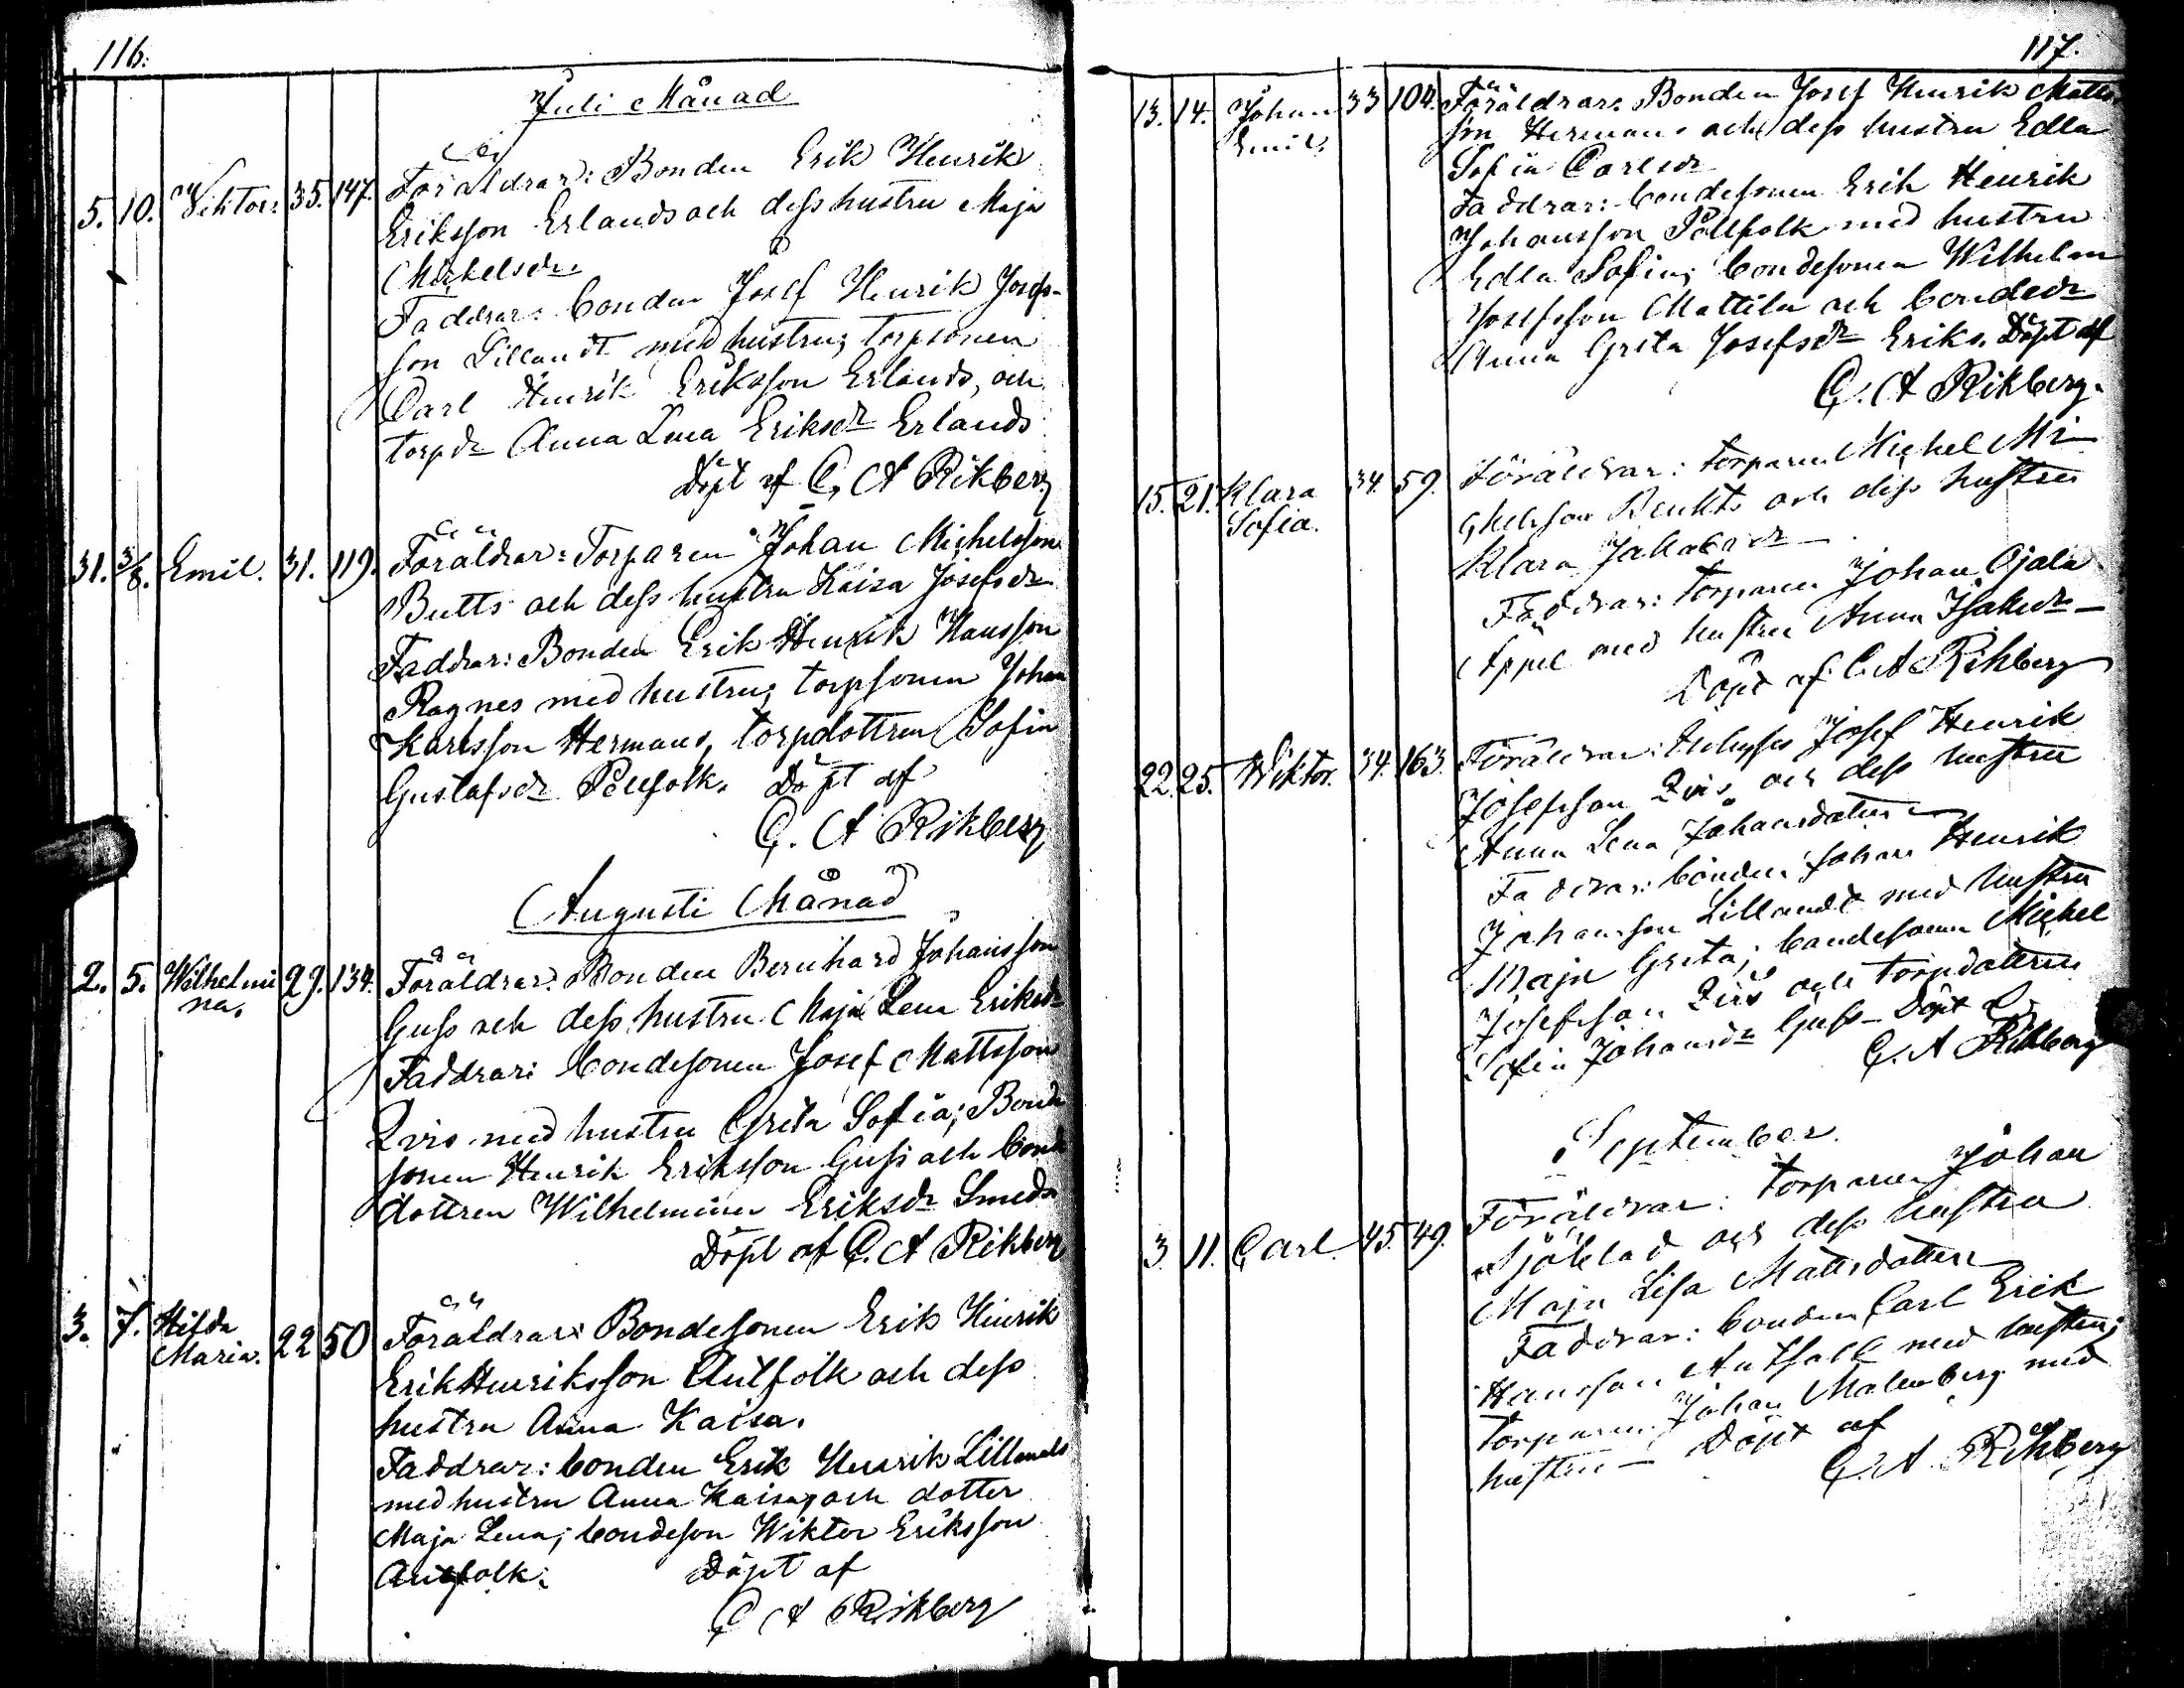 116.
Juli Månad
5. 10. Viktor. 35. 147. Föräldrar: Bonden Erik Henrik
Eriksson Erlands och dess hustru Maja
Michelsdr
Faddrar: bonden Josef Henrik Josefs-
son Lillandt med hustru; torpsonen
Carl Henrik Eriksson Erlands, och
torpdr Anna Lena Eriksdr Erlands
Döpt af C. A Rikberg
31. 3/8. Emil. 31. 119. Föräldrar: Torparen Johan Michelsson
Butts och dess hustru Kaisa Josefsdr
Faddrar: Bonden Erik Henrik Hansson
Ragnes med hustru; torpsonen Johan
Karlsson Hermans, torpdottren Sofia
Gustafsdr Pellfolk. Döpt af
C. A Rikberg
Augusti Månad
2. 5. Wilhelmi
na. 29. 134. Föräldrar: Bonden Bernhard Johansson
Guss och dess hustru Maja Lena Eriksdr
Faddrar: bondesonen Josef Mattsson
Qvis med hustru Greta Sofia; Bonde
sonen Henrik Eriksson Guss och bond
dottren Wilhelmina Eriksdr Smeds
Döpt af C. A Rikberg
3. 7. Hilda
Maria. 22 50 Föräldrar: Bondesonen Erik Henrik
Erik Henriksson Antfolk och dess
hustru Anna Kaisa.
Faddrar: bonden Erik Henrik Lillandt
med hustru Anna Kaisa, och dotter
Maja Lena; bondeson Wiktor Eriksson
Antfolk. Döpt af
C A Rikberg
117.
13. 14. Johan
Emil. 33 104. Föräldrar: Bonden Josef Henrik Matts-
son Hermans och dess hustru Edla
Sofia Carlsdr
Faddrar: bondesonen Erik Henrik
Johansson Pellfolk med hustru
Edla Sofia; bondesonen Wilhelm
Josefsson Mattila och bondedr
Anna Greta Josefsdr Eriks. Döpt af
C. A Rikberg.
15. 21. Klara
Sofia. 34. 59. Föräldrar: torparen Michel Mi-
chelsson Benkts och dess hustru
Klara Jakobsdr
Faddrar: torparen Johan Ojala
Appel med hustru Anna Isaksdr
Döpt af C. A Rikberg
22. 25. Wiktor. 34. 163. Föräldrar: Josef Henrik
Josefsson Qvis och dess hustru
Anna Lena Johansdotter
Faddrar: bonden Johan Henrik
Johansson Lillandt med hustru
Maja Greta; bondesonen Michel
Josefsson Qvis och torpdottren
Sofia Johansdr Guss - Döpt af
C. A Rikberg
September.
3. 11. Carl. 45. 49. Föräldrar: torparen Johan
Sjöblad och dess hustru
Maja Lisa Mattsdotter
Faddrar: bonden Carl Erik
Hansson Antfolk med hustru;
torparen Johan Malmberg med
hustru - Döpt af
C. A. Rikberg